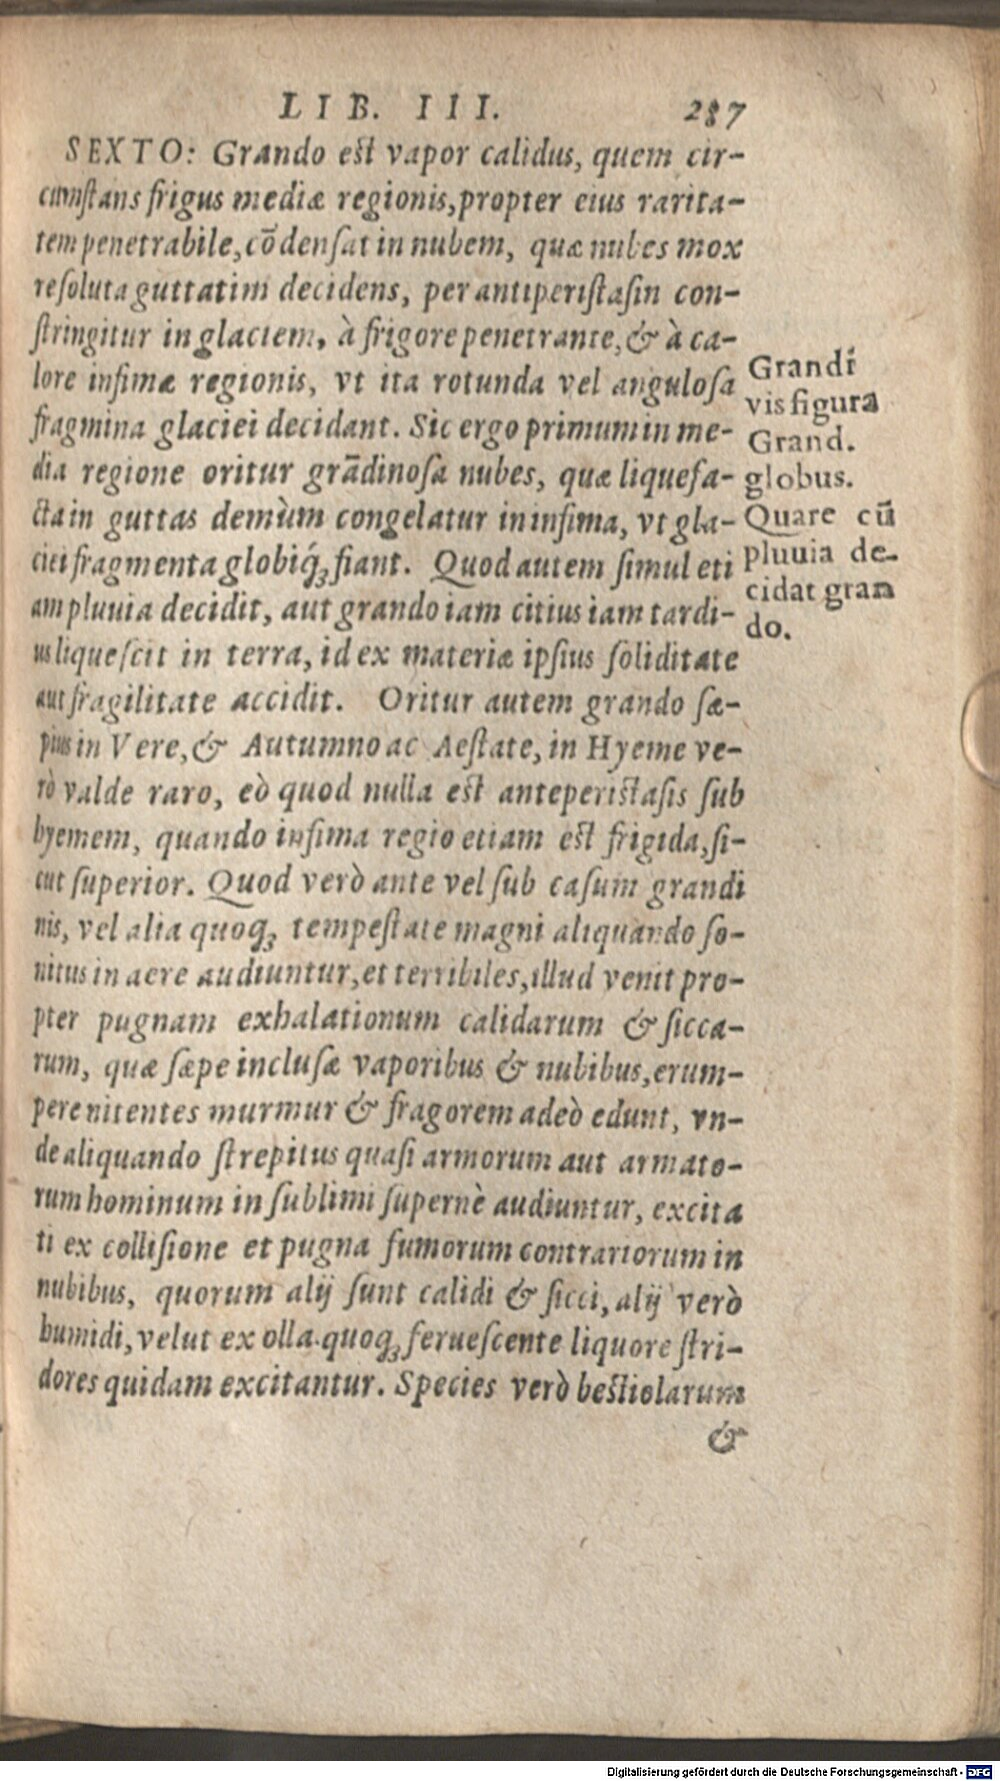 LIB. III. 287
SEXTO: Grando est vapor calidus, quem cir-
cumſtans frigus mediæ regionis, propter eius rarita-
tem penetrabile, cōdenſat in nubem, quæ nubes mox
reſoluta guttatim decidens, per antiperiſtaſin con-
ſtringitur in glaciem, à frigore penetrante, & à ca-
lore infimæ regionis, vt ita rotunda vel anguloſa
fragmina glaciei decidant. Sic ergo primum in me-
dia regione oritur grādinoſa nubes, quæ liquefa-
cta in guttas demùm congelatur in infima, vt gla-
ciei fragmenta globiq́ꝫ fiant. Quod autem ſimul eti
am pluuia decidit, aut grando iam citius iam tardi-
us liqueſcit in terra, id ex materiæ ipſius ſoliditate
aut fragilitate accidit. Oritur autem grando ſæ-
pius in Vere, & Autumno ac Aeſtate, in Hyeme ve-
rò valde raro, eò quod nulla est anteperistaſis ſub
hyemem, quando infima regio etiam est frigida, ſi-
cut ſuperior. Quod verò ante vel ſub caſum grandi
nis, vel alia quoqꝫ tempeſtate magni aliquando ſo-
nitus in aere audiuntur, et terribiles, illud venit pro-
pter pugnam exhalationum calidarum & ſicca-
rum, quæ ſæpe incluſæ vaporibus & nubibus, erum-
pere nitentes murmur & fragorem adeò edunt, vn-
de aliquando ſtrepitus quaſi armorum aut armato-
rum hominum in ſublimi ſupernè audiuntur, excita
ti ex colliſione et pugna fumorum contrariorum in
nubibus, quorum alij ſunt calidi & ſicci, alij verò
humidi, velut ex olla quoqꝫ ferueſcente liquore ſtri-
dores quidam excitantur. Species verò bestiolarum
&
Grandi
vis figura
Grand.
globus.
Quare cū
pluuia de-
cidat gran
do.
Digitalisierung gefördert durch die Deutsche Forschungsgemeinschaft - DFG